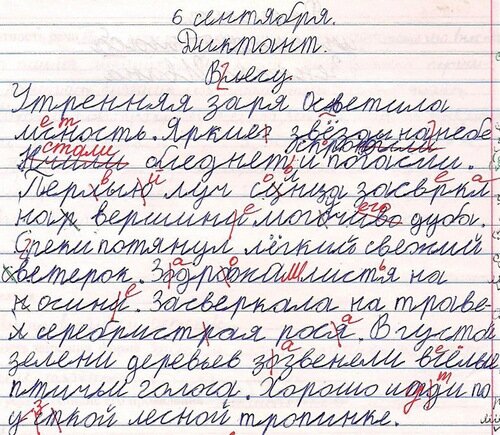 6 сентября.
Диктант.
В лесу.
Утренняя заря Осветила
мсность. Яркиех звёзды нанебе
стали обледнеть и погасли.
Перхый луч сонца засвркл
нах вершине могочево дуба.
Среки потянул лёгкий свежий
ветерок. Здрожа листя на
Хосине. Засверкала на траве
х серебристрая рося. В густо
зелени деревьев зозвенели весёлые
птичьи голоса. Хорошо идти по
уской лесной тропинке.